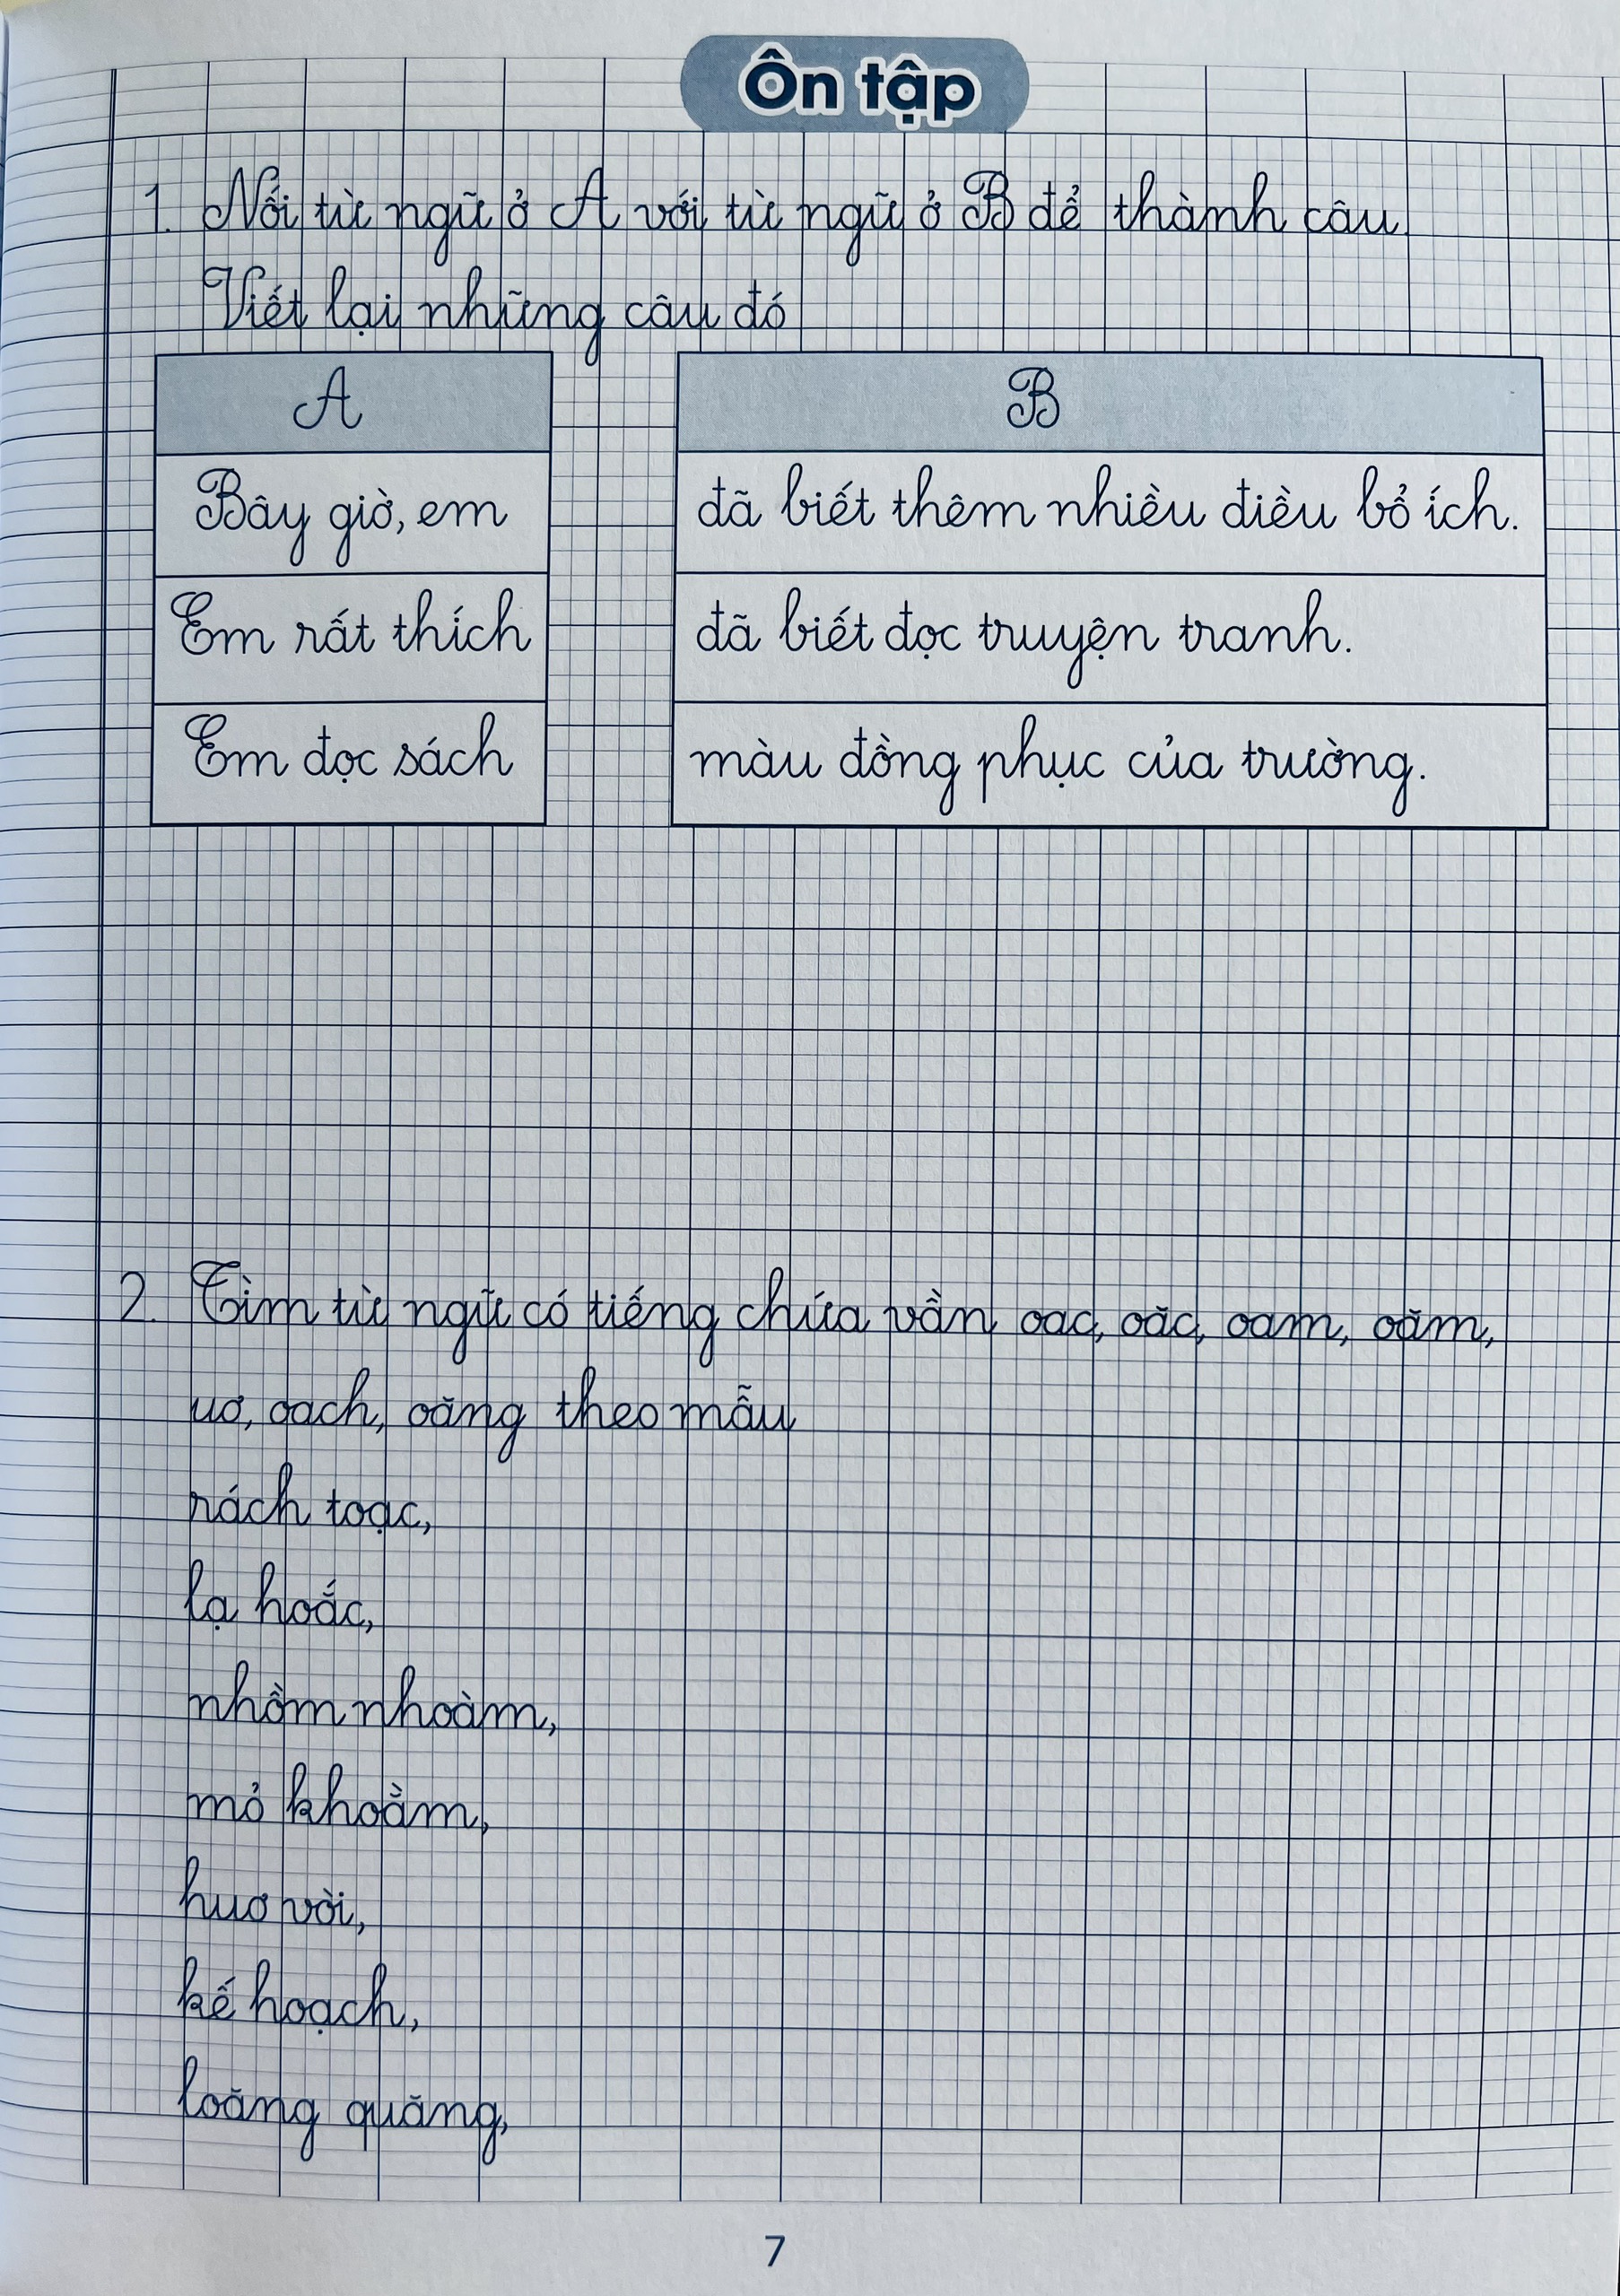 Ôn tập
1. Nối từ ngữ ở A với từ ngữ ở B để thành câu.
Viết lại những câu đó
A
B
Bây giờ, em
đã biết thêm nhiều điều bổ ích.
Em rất thích
đã biết đọc truyện tranh.
Em đọc sách
màu đồng phục của trường.
2. Tìm từ ngữ có tiếng chứa vần oac, oăc, oam, oăm,
uơ, oach, oăng theo mẫu
rách toạc,
lạ hoắc,
nhồm nhoàm,
mỏ khoằm,
huơ vòi,
kế hoạch,
loăng quăng,
7